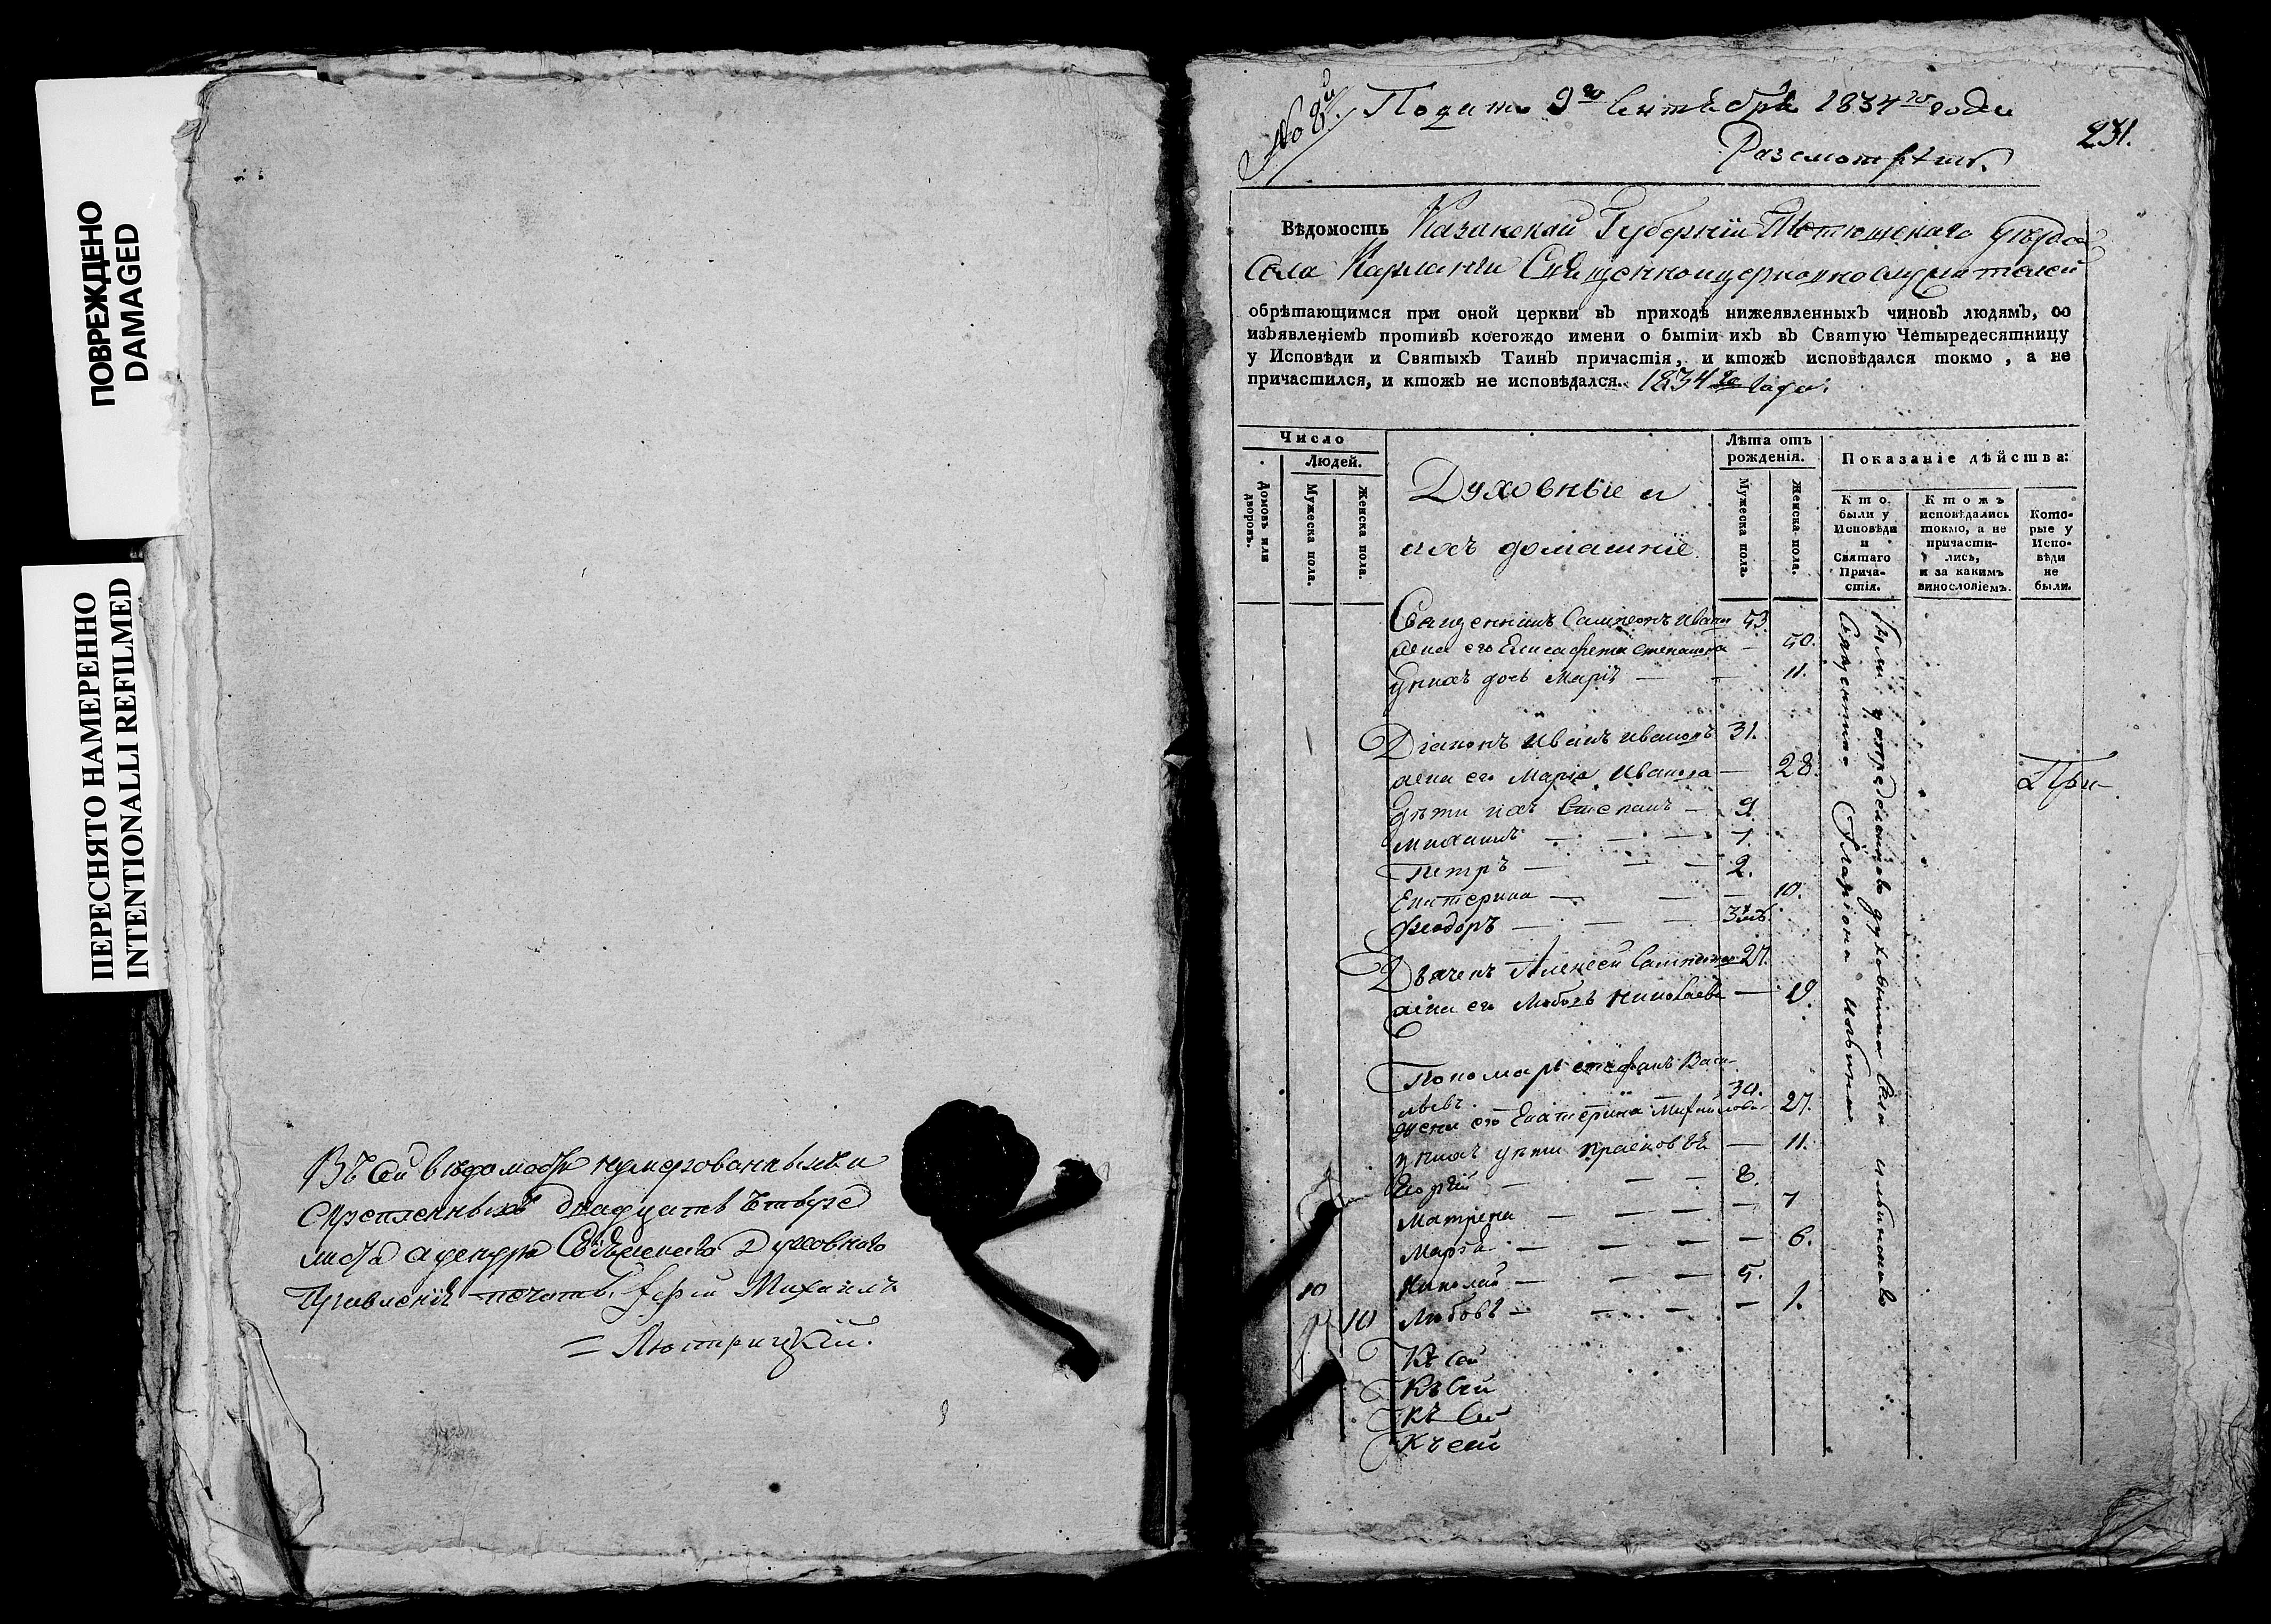 ПОВРЕЖДЕНО
DAMAGED
ПЕРЕСНЯТО НАМЕРЕННО
INTENTIONALLI REFILMED
Въ сей вѣдомости нумерованныхъ и
скрепленныхъ двадцать четыре
листа
Духовного
Правленія печать. Іерей Михаилъ
=
№ 8й Подато 9го Сентября 1834го года
Разсмотрѣть.
231.
Вѣдомость Казанской Губерніи Тетюшскаго уѣзда
Села Священноцерковнослужителей
обрѣтающимся при оной церкви въ приходѣ нижеявленныхъ чиновъ людямъ, со
изъявленіемъ противъ коегождо имени о бытіи ихъ въ Святую Четыредесятницу
у Исповѣди и Святыхъ Таинъ причастія, и ктожъ исповѣдался токмо, а не
причастился, и ктожъ не исповѣдался. 1834го Года.
Число
Людей.
Домовъ или дворовъ.
Мужеска пола.
Женска пола.
Духовные и
ихъ домашніе
Лѣта отъ
рожденія.
Мужеска пола.
Женска пола.
Показаніе дѣйства:
Кто были у Исповѣди и Святаго Причастія.
Ктожъ исповѣдались токмо, а не причастились, и за какимъ винословіемъ.
Которые у Исповѣди не были.
Священникъ Сампсонъ Иванов 53
жена его Елисавета Степанова — 50.
у нихъ дочь Марія — — 11.
Діаконъ Иванъ Ивановъ 31.
жена его Марія Иванова — 28.
При-
дѣти ихъ Степанъ — 9.
Михаилъ — — — 7.
Петръ — — — 2.
Екатерина — — — 10.
Феодоръ — — — 3
Дьячекъ Алексей Сампсонов 27.
жена его Любовь Николаева — 19.
Пономарь Стефанъ Васи-
льевъ. 30.
жена его Екатерина Михайлова — 27.
у нихъ дѣти Прасковья — 11.
Георгій — — — 8.
Матрена — — — — 7
Марѳа — — — — 6.
10 Николай — — — 5.
10 Любовь — — — — 1.
Къ сей
Къ сей
Къ сей
Къ сей